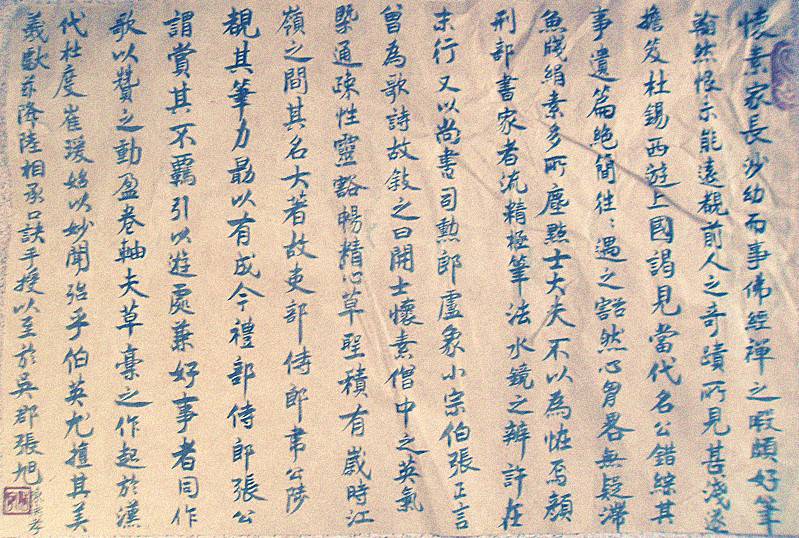 懷素家長沙幼而事佛經禪之暇頗好筆
翰然恨未能遠覩前人之奇蹟所見甚淺遂
擔笈杖錫西遊上國謁見當代名公錯綜其
事遺篇絕簡往〻遇之豁然心胷略無疑滯
魚牋絹素多所塵點士大夫不以為恠焉顏
刑部書家者流精極筆法水鏡之辨許在
末行又以尚書司勳郎盧象小宗伯張正言
曾為歌詩故敍之曰開士懷素僧中之英氣
槩通疎性靈豁暢精心草聖積有歲時江
嶺之間其名大著故吏部侍郎韋公陟
覩其筆力勗以有成今禮部侍郎張公
謂賞其不羈引以遊處兼好事者同作
歌以贊之動盈卷軸夫草稾之作起於漢
代杜度崔瑗始以妙聞迨乎伯英尤擅其美
羲獻茲降陸相承口訣手授以至於吳郡張旭